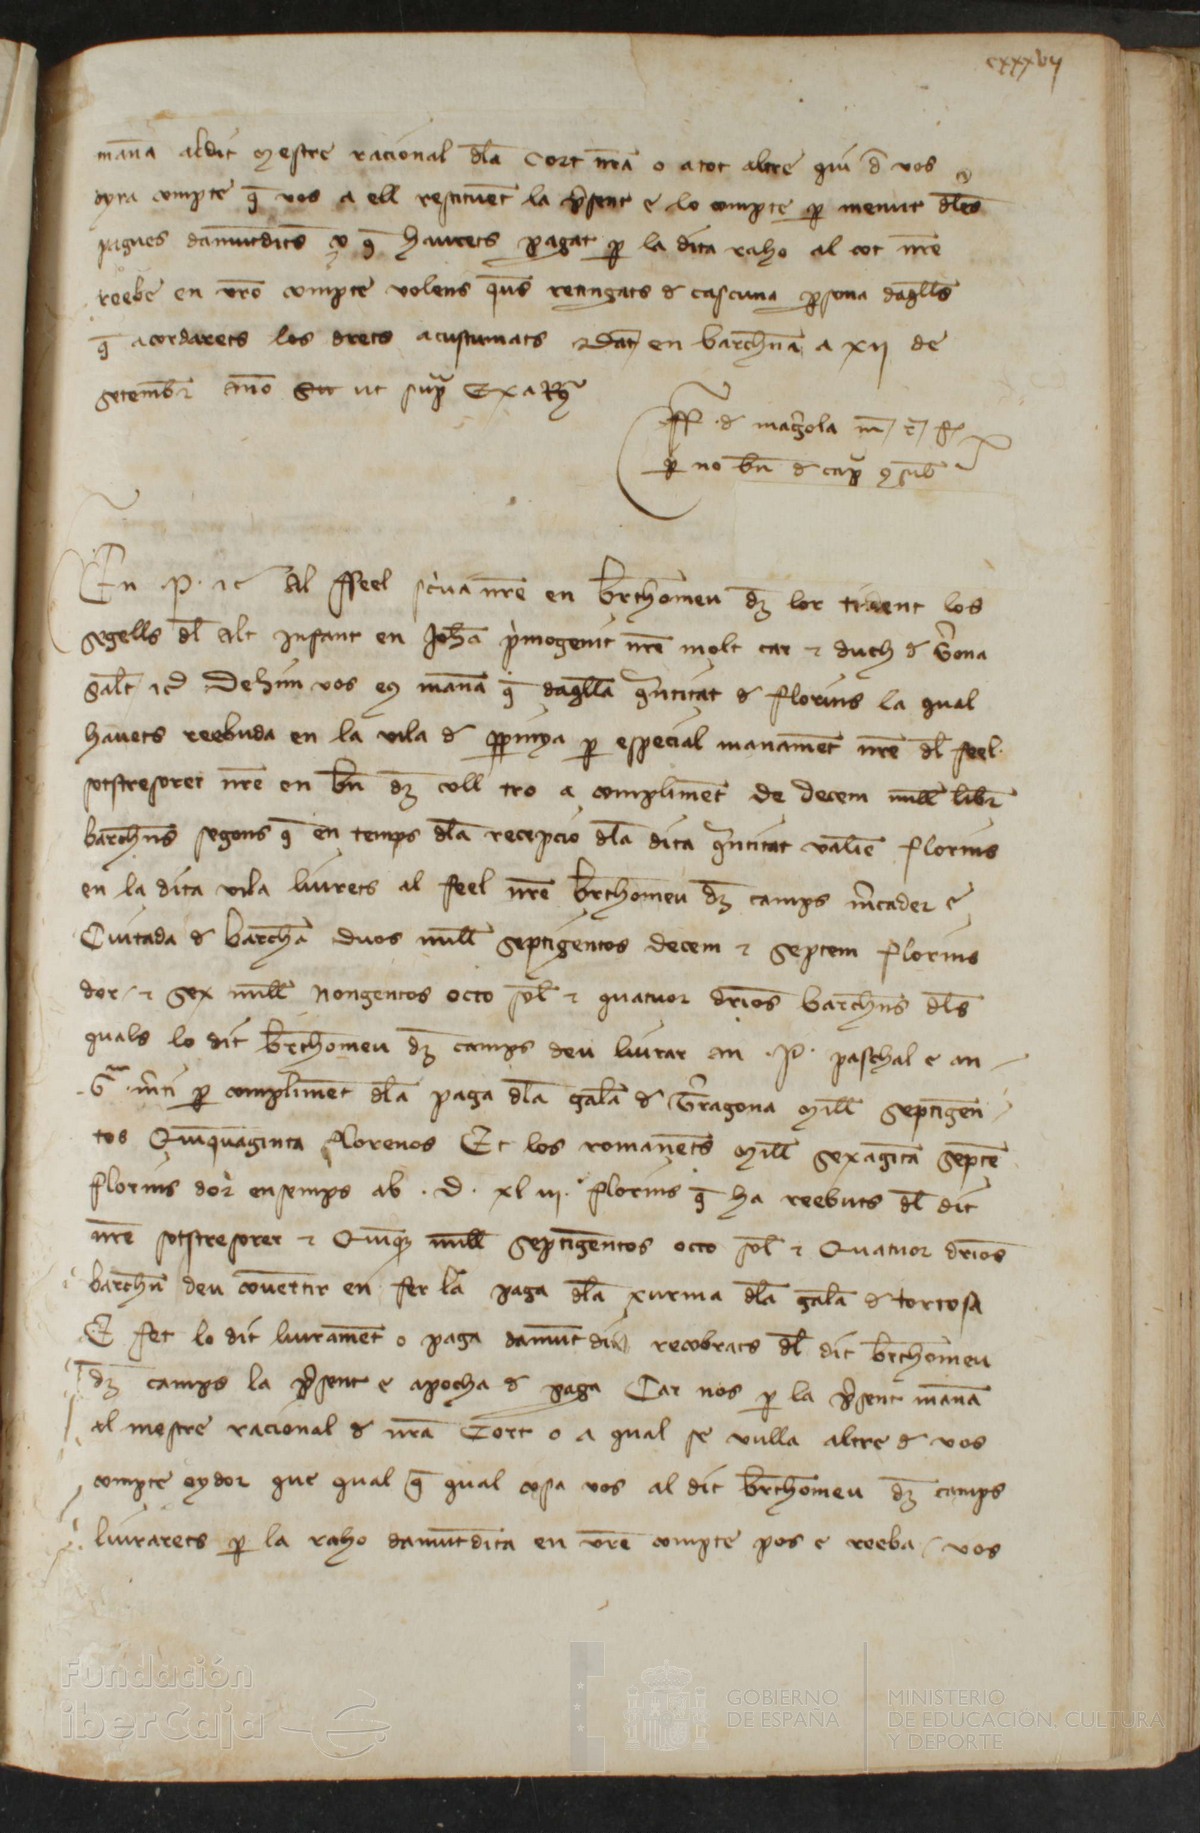 cxxxvij
mana al dit Mestre racional dla Cort nra o a tot altre qui d vos
oyra compte q vos a ell restituent la psent e lo compte p menut dles
pagues damuntdits q haurets pagat p la dita raho al tot nre
reebe en vro compte volens qus retingats d cascuna psona daqlls
q acordarets los drets acustumats Dat en barchna a xij de
Setembr ano ut sup Exa Ry
d magola
p no bn d cap
En P. Al ffeel scriva nre en brthomeu dz lor tident los
segells dl Alt Infant en Joha pmogenit nre molt car e duch d Gona
Salt Dehim vos e manam q daqlla quntitat d florins la qual
havets reebuda en la vila d ppinya p especial manament nre dl feel
sotstresorer nre en bn dz coll tro a compliment de decem mill libr
barchns segons q en temps dla recepcio dla dita quntitat valien florins
en la dita vila liurets al feel nre brthomeu dz camps mcader e
Ciutada d barchna duos mill septigentos decem e septem florins
dor e sex mill nongentos octo sol e quatuor drios barchns dls
quals lo dit brthomeu dz camps deu liurar an .P. paschal e an
G mti p compliment dla paga dla galea d Tragona Mill septigen
tos Quinquaginta florenos Et los romanents Mill sexaginta septe
florins dor ensemps ab . D . xl iij . florins q ha reebuts dl dit
nre sotstresorer e Quinq mill septigentos octo sol e Quatuor drios
barchn deu convertir en fer la paga dla xurma dla galea d tortosa
E fet lo dit liurament o paga damunt dit recobrats dl dit brthomeu
dz camps la psent e apocha d paga Car nos p la psent manam
al mestre racional d nra Cort o a qual se vulla altre d vos
compte oydor que qual q qual cosa vos al dit brthomeu dz camps
liurarets p la raho damuntdita en vre compte pos e reeba vos
Fundación
iberCaja
GOBIERNO
DE ESPAÑA
MINISTERIO
DE EDUCACIÓN, CULTURA
Y DEPORTE